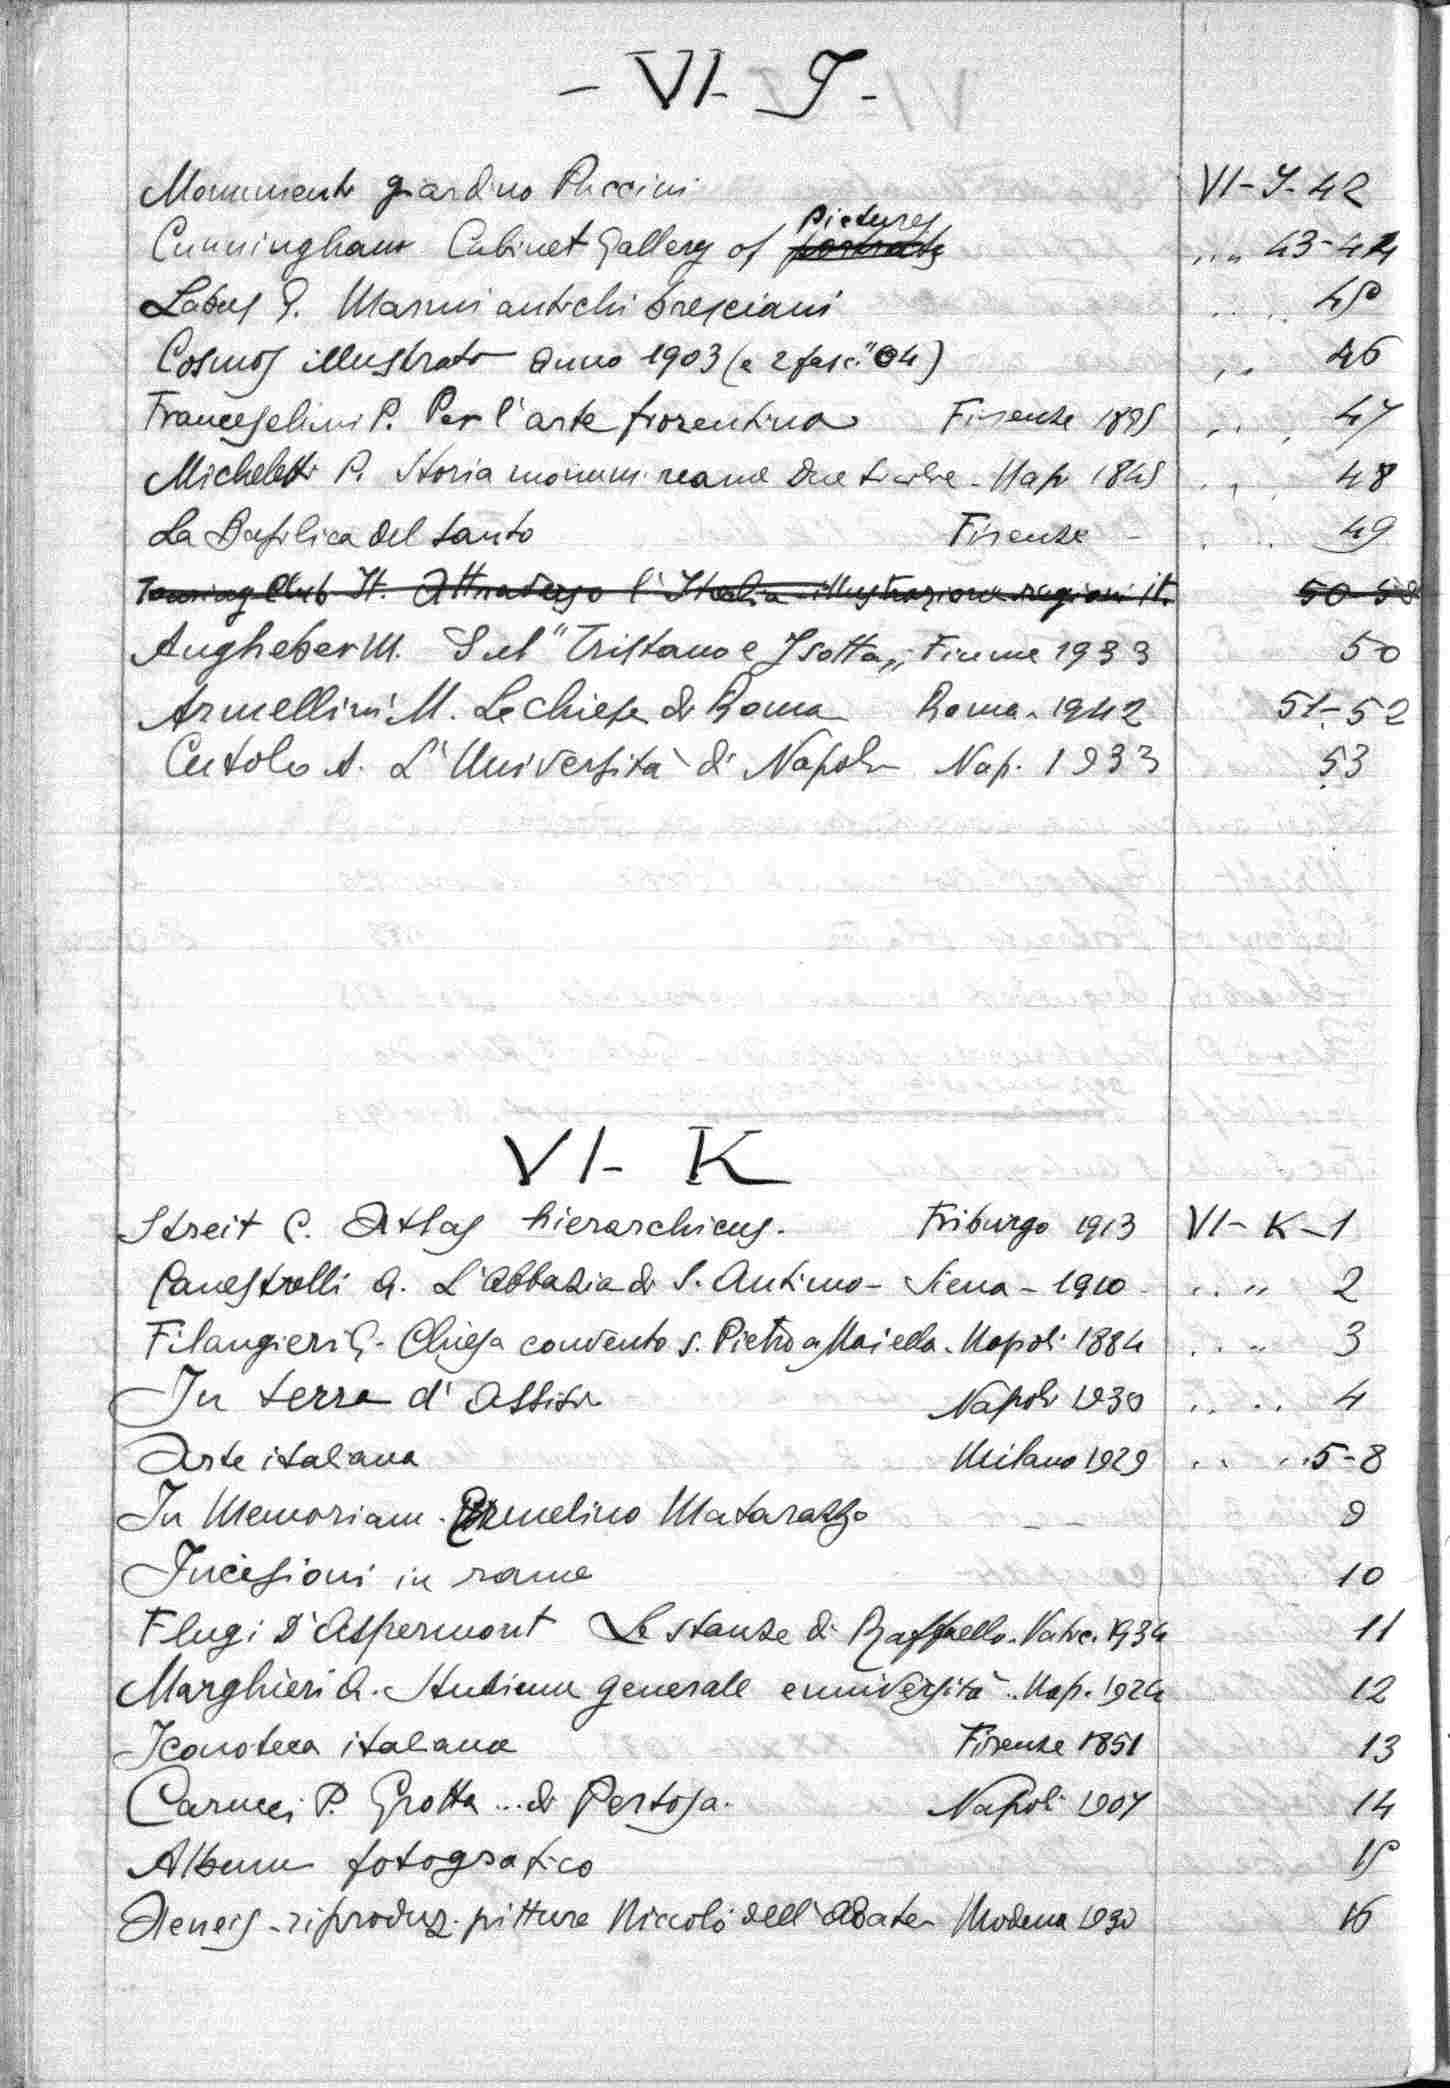 - VI - J -
Monumenti giardino Puccini VI - J - 42
Cunningham Cabinet Gallery of pictures „ „ 43-44
Labus G. Marmi antichi bresciani . . . . 45
Cosmos illustrato anno 1903 (e 2 fasc. "04) „ 46
Franceschini P. Per l'arte fiorentina Firenze 1895 „ . , 47
Micheletti P. Storia monum. reame due Sicilie - Nap 1845 . , . 48
La Basilica del Santo Firenze - . . . 49
Touring Club It. Attraverso l'Italia illustrazione regioni it. 50-58
Angheben M. Sul "Tristano e Isotta„ Fiume 1933 50
Armellini M. Le chiese di Roma Roma - 1942 51-52
Cutolo A. L'Università di Napoli Nap. 1933 53
VI - K
Streit C. Atlas hierarchicus. Friburgo 1913 VI - K - 1
Canestrelli A. L'abbazia di S. Antimo - Siena - 1910 - . . „ 2
Filangieri G. - Chiesa convento S. Pietro a Maiella. Napoli 1884 . . „ 3
In terra d'Assisi Napoli 1930 . . . . 4
Arte italiana Milano 1929 . . . . 5-8
In Memoriam. Ermelino Matarazzo 9
Incisioni in rame 10
Flugi D'Aspermont Le stanze di Raffaello. Vatic. 1934 11
Marghieri A. Studium generale e università. Nap. 1924 12
Iconoteca italiana Firenze 1851 13
Carucci P. Grotta ... di Pertosa. Napoli 1907 14
Album fotografico 15
Aeneis - riproduz. pitture Niccolò dell'Abate - Modena 1930 16